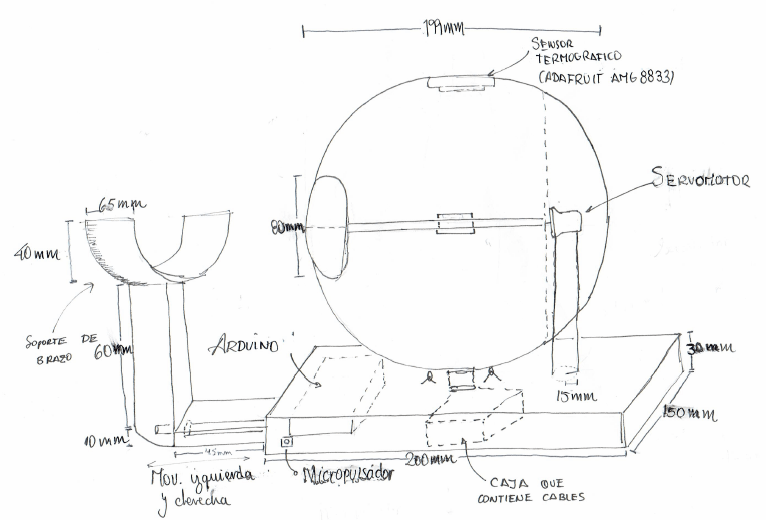 199mm
SENSOR
TERMOGRAFICO
(ADAFRUIT AMG8833)
SERVOMOTOR
65mm
40mm
80mm
SOPORTE DE
BRAZO
60mm
ARDUINO
30mm
15mm
150mm
10mm
45mm
200mm
Mov. izquierda
y derecha
Micropulsador
CAJA QUE
CONTIENE CABLES